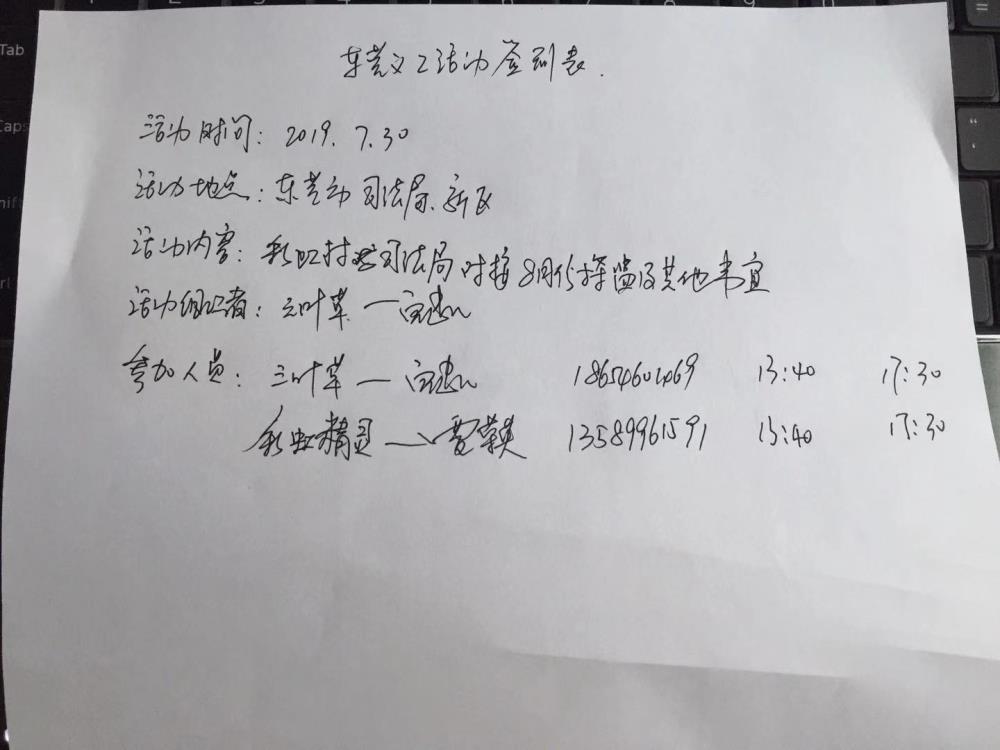 东营义工活动签到表.
活动时间: 2019. 7.30
活动地点: 东营市司法局.新区
活动内容: 彩虹村与司法局对接8月份探监及其他事宜
活动组织者: 三叶草 —
参加人员: 三叶草 — 13:40 17:30
彩虹精灵 — 13589961591 13:40 17:30
Tab
Caps